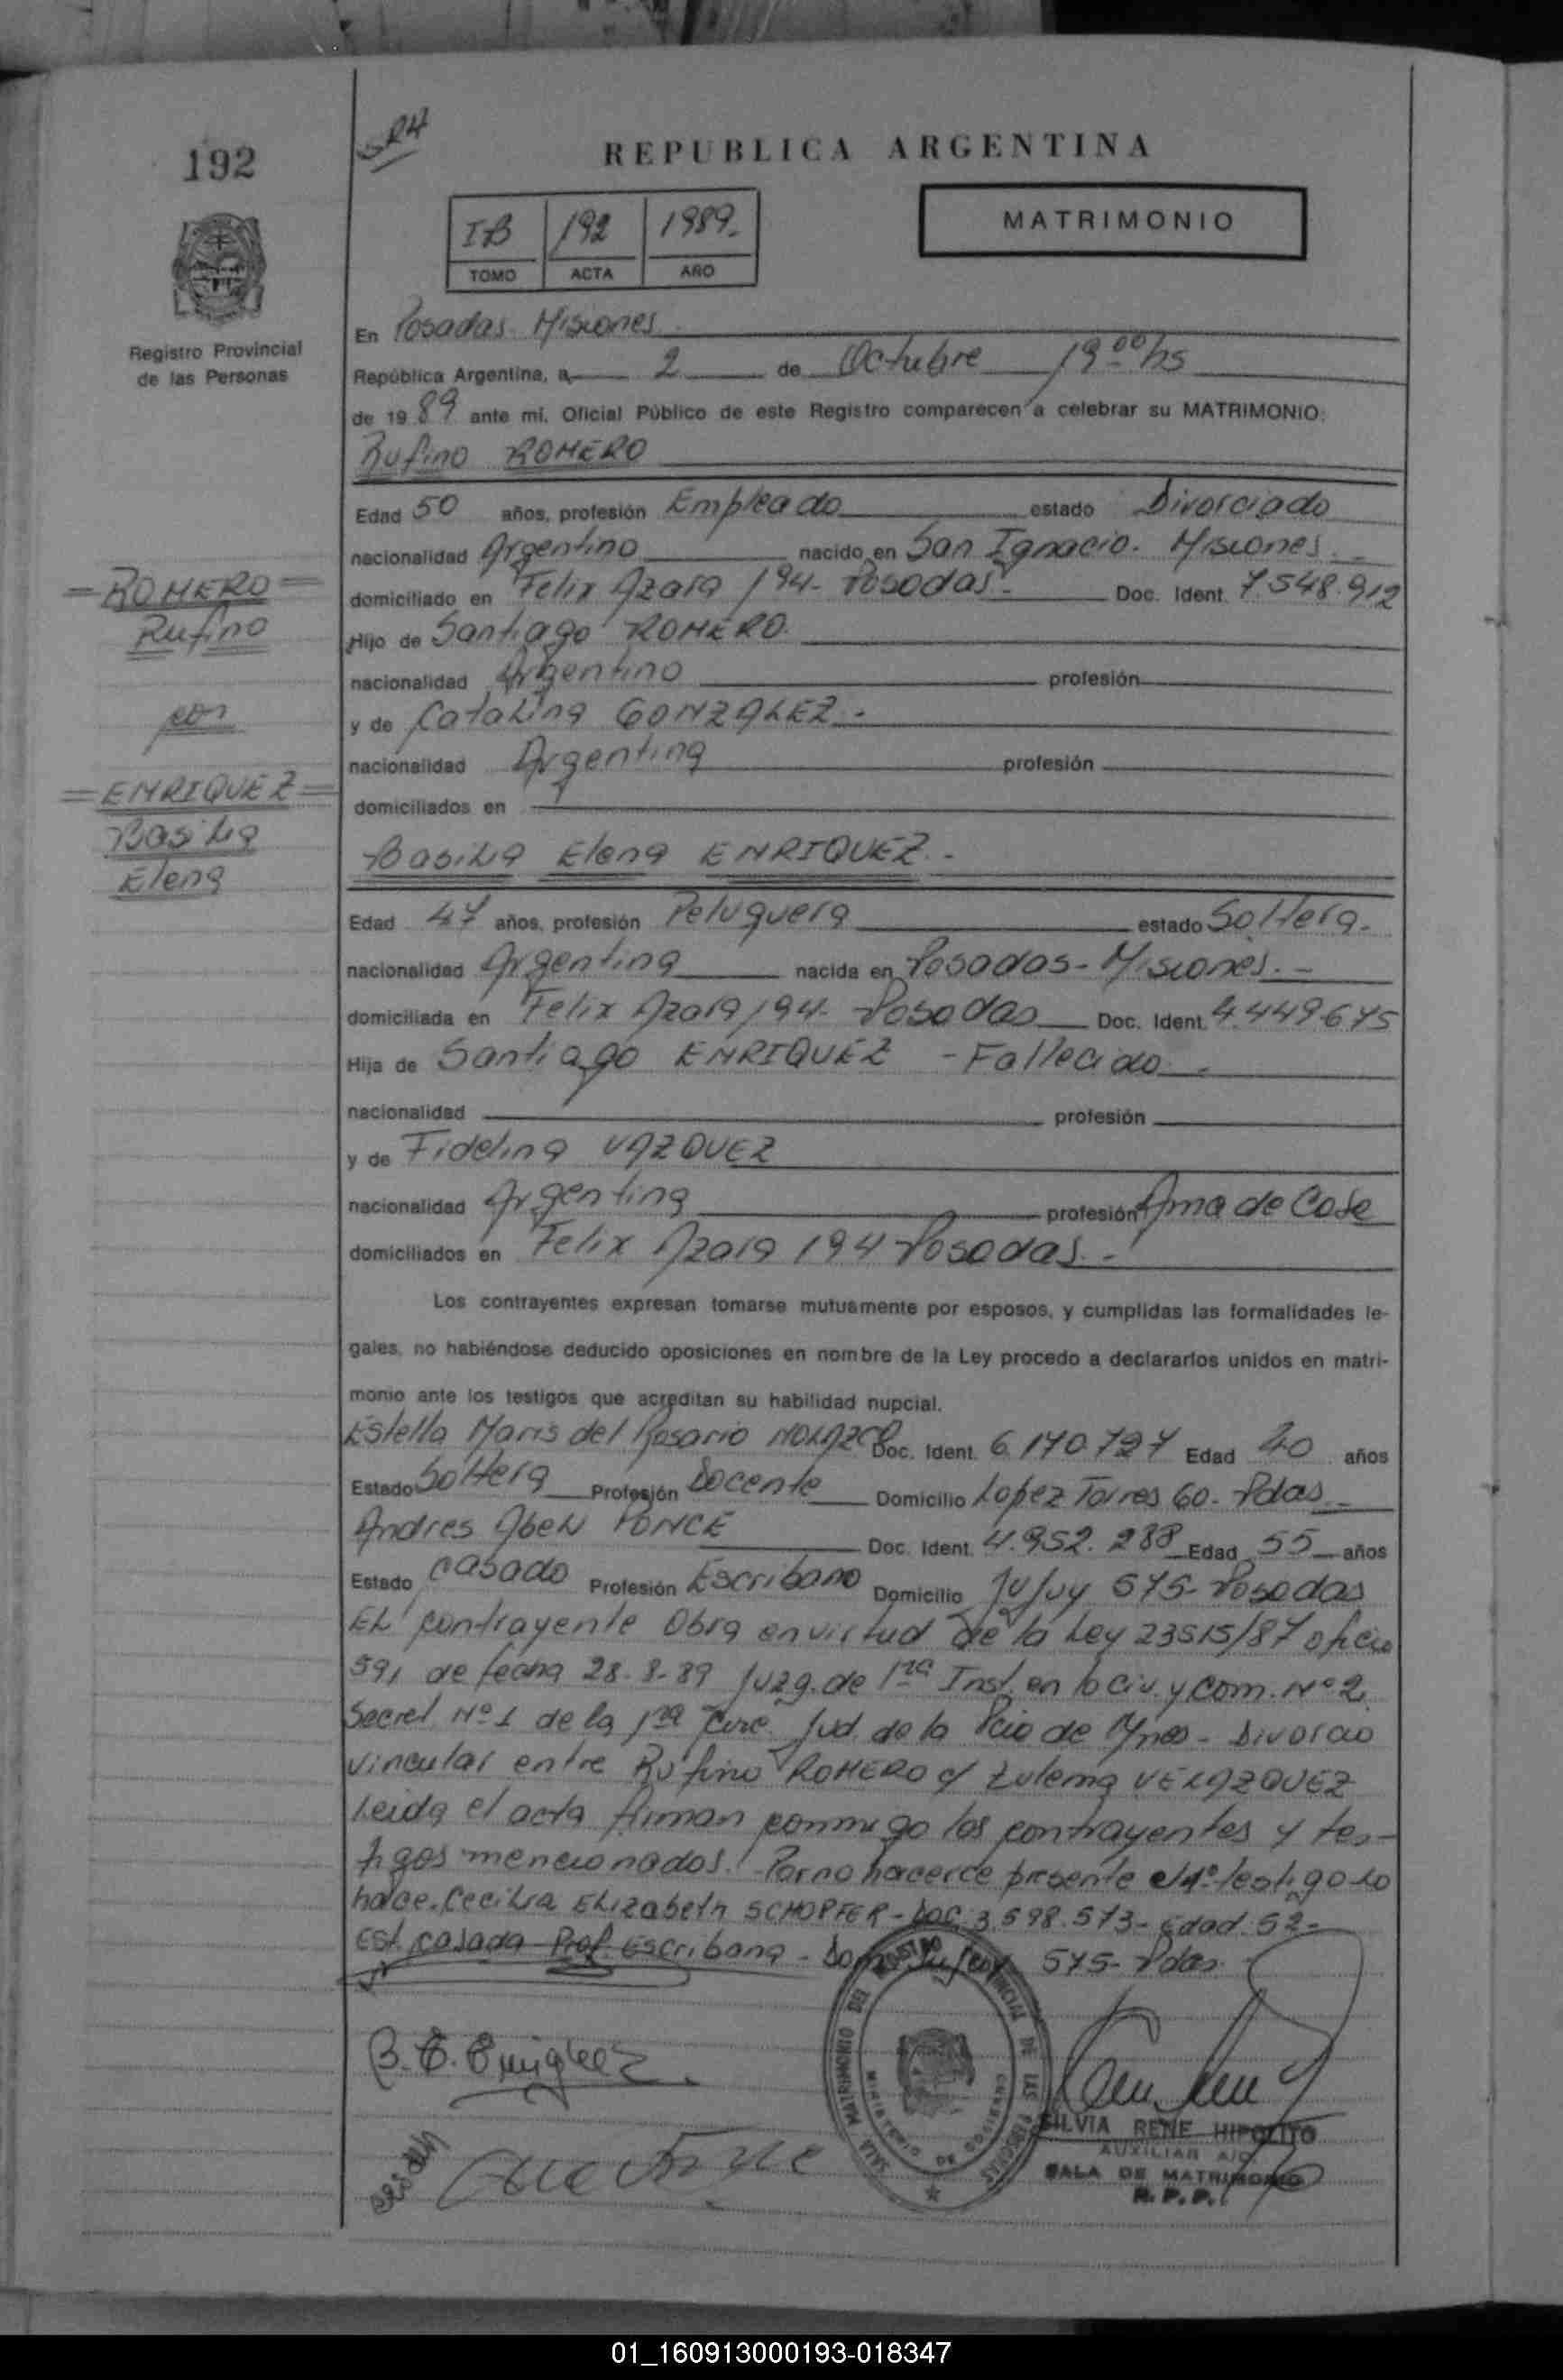 192
SRH
REPUBLICA ARGENTINA
IB 192 1989.-
TOMO ACTA AÑO
MATRIMONIO
Registro Provincial
de las Personas
En Posadas. Misiones
República Argentina, a 2 de Octubre 19 00 hs
de 19 89 ante mi, Oficial Público de este Registro comparecen a celebrar su MATRIMONIO:
Rufino ROMERO
Edad 50 años, profesión Empleado estado Divorciado
nacionalidad Argentino nacido en San Ignacio. Misiones.-
domiciliado en Felix Azara 194- Posadas.- Doc. Ident. 7.548.912
Hijo de Santiago ROMERO.
nacionalidad Argentino profesión
y de Catalina GONZALEZ.-
nacionalidad Argentina profesión
domiciliados en
= ROMERO =
Rufino
con
= ENRIQUEZ =
Basilia
Elena
Basilia Elena ENRIQUEZ.-
Edad 47 años, profesión Peluquera estado Soltera.
nacionalidad Argentina nacida en Posadas- Misiones.-
domiciliada en Felix Azara 194- Posadas Doc. Ident. 4.449.675
Hija de Santiago ENRIQUEZ - Fallecido.-
nacionalidad profesión
y de Fidelina VAZQUEZ
nacionalidad Argentina profesión Ama de Casa
domiciliados en Felix Azara 194 Posadas.-
Los contrayentes expresan tomarse mutuamente por esposos, y cumplidas las formalidades le-
gales, no habiéndose deducido oposiciones en nombre de la Ley procedo a declararlos unidos en matri-
monio ante los testigos que acreditan su habilidad nupcial.
Estella Maris del Rosario Doc. Ident. 6.170.727 Edad 40 años
Estado Soltera Profesión Docente Domicilio Lopez Torres 60.- Pdas.-
Andres Abel PONCE Doc. Ident. 4.952.288 Edad 55 años
Estado Casado Profesión Escribano Domicilio Jujuy 575- Posadas
El contrayente Obra en virtud de la Ley 23515/87 oficio
591 de fecha 28.8.89 Juzg. de 1ra Inst. en lo Civ. y Com. Nº 2
Secret Nº 1 de la 1ra Circ. Jud. de la Pcia de Mnes - Divorcio
vincular entre Rufino ROMERO c/ Zulema VELAZQUEZ
Leida el acta firman conmigo los contrayentes y tes-
tigos mencionados. Por no hacerce presente el 1º testigo lo
hace. Cecilia Elizabeth SCHOPFER - Doc. 3.598.573- Edad. 52-
Est. casada Prof. Escribana - Dom. Jujuy 575- Pdas
B. E. Enriquez
SALA MATRIMONIO DEL REGISTRO PROVINCIAL DE LAS PERSONAS
MINISTERIO DE GOBIERNO
SILVIA RENE HIPOLITO
AUXILIAR A/C
SALA DE MATRIMONIO
R. P. P.
01_160913000193-018347